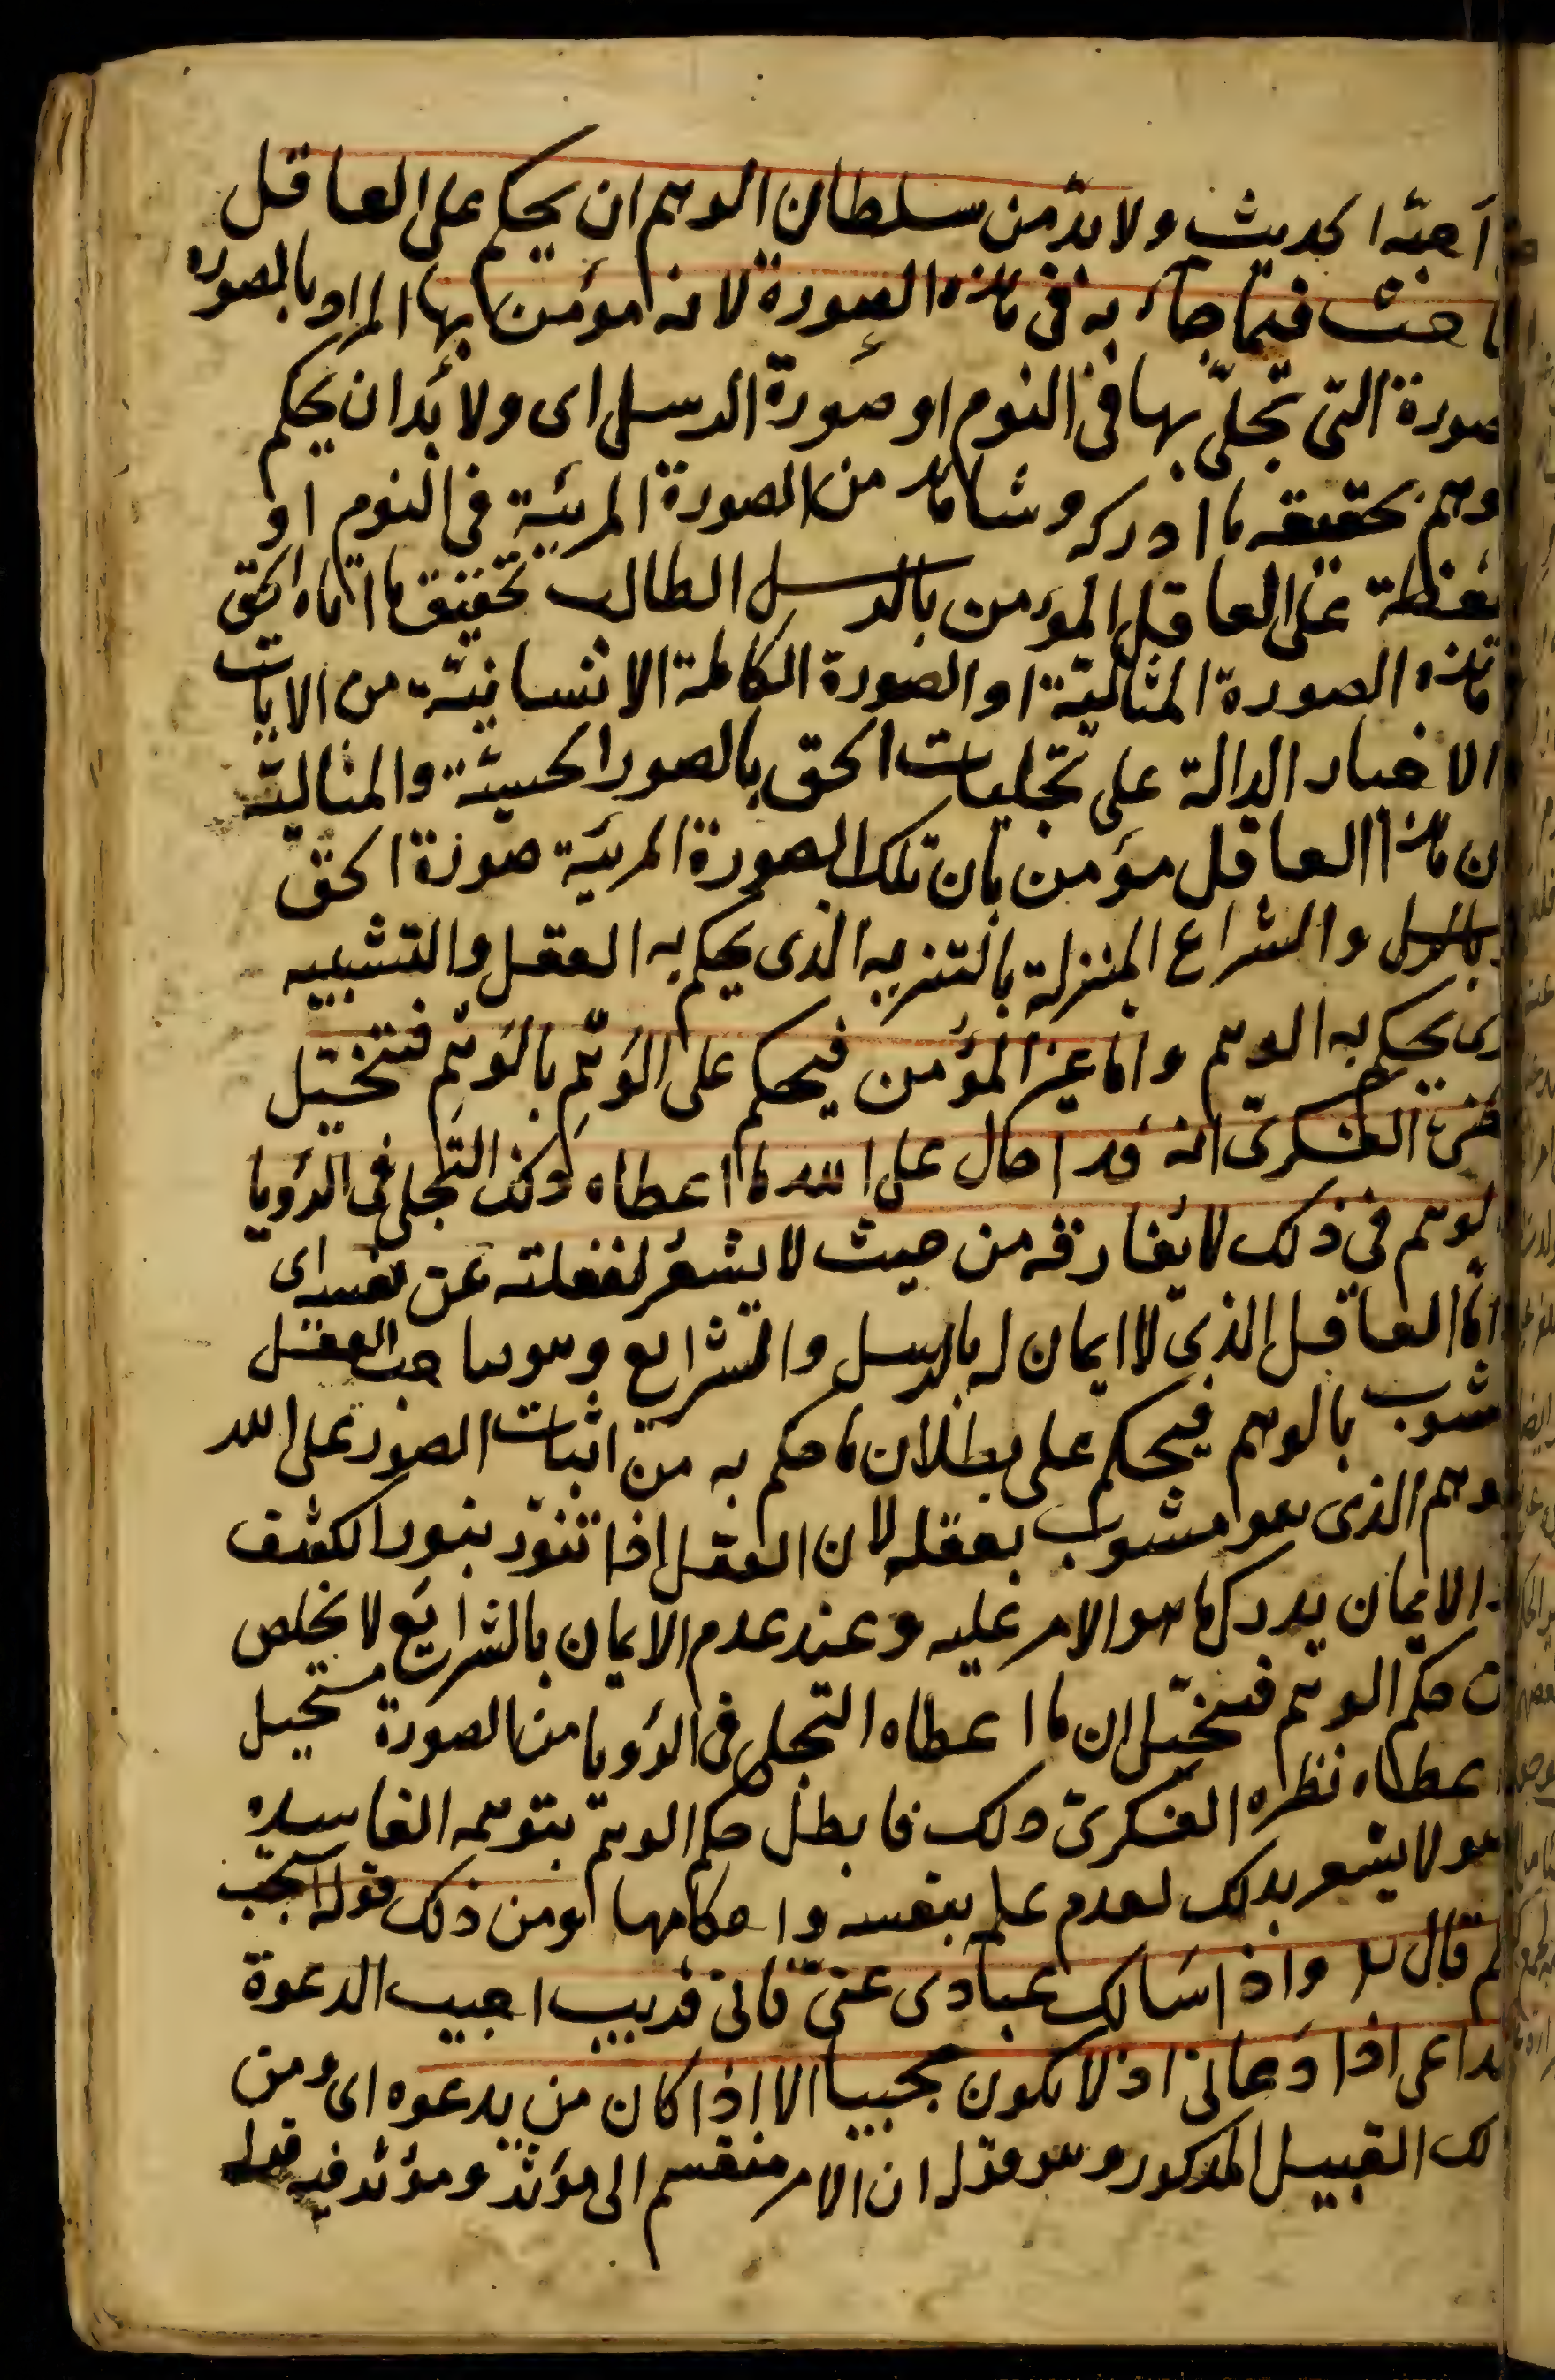 احبه الحديث ولا بد من سلطان الوهم ان يحكم على العاقل
الباحث فيما جاء به في هذه الصورة لانه مؤمن بها المراد بالصورة
صورة التي تجلى بها في النوم او صورة الرسل اى ولا بد ان يحكم
وهم بحقيقه ما ادركه وشاهد من الصورة المرئية في النوم او
يقظة على العاقل المؤمن بالرسل الطالب تحقيق ما اتاه الحق
هذه الصورة المثالية او الصورة الكاملة الانسانية من الايات
والاخبار الدالة على تجليات الحق بالصور الحسية والمثالية
ن هذا العاقل مؤمن بان تلك الصورة المرئية صورة الحق
بالرسل والشرايع المنزلة بالتنزيه الذى يحكم به العقل والتشبيه
ذى يحكم به الوهم واما غير المؤمن فيحكم على الوهم بالوهم فتخيل
الفكرى انه قد احال على الله ما اعطاه ذلك التجلى في الرؤيا
لوهم في ذلك لا يفارقه من حيث لا يشعر لغفلته عن نفسه اى
اما العاقل الذى لا ايمان له بالرسل والشرايع وهو صاحب العقل
مشوب بالوهم فيحكم على بطلان ما حكم به من اثبات الصور على الله
وهم الذى هو مشوب بعقله لان العقل اذا تنور بنور الكشف
الايمان يدرك ما هو الامر عليه وعند عدم الايمان بالشرايع لا يخلص
ن حكم الوهم فتخيل ان ما اعطاه التجلى في الرؤيا من الصورة مستحيل
اعطاه نظره الفكرى ذلك فابطل حكم الوهم بتوهمه الفاسد
هو لا يشعر بذلك لعدم علمه بنفسه واحكامها ومن ذلك قوله استجب
لكم قال تع واذا سالك عبادى عنى فانى قريب اجيب الدعوة
لداعى اذا دعانى اذ لا يكون مجيبا الا اذا كان من يدعوه اى ومن
لك القبيل المذكور وهو قوله ان الامر منقسم الى مؤثر ومؤثر فيه قوله